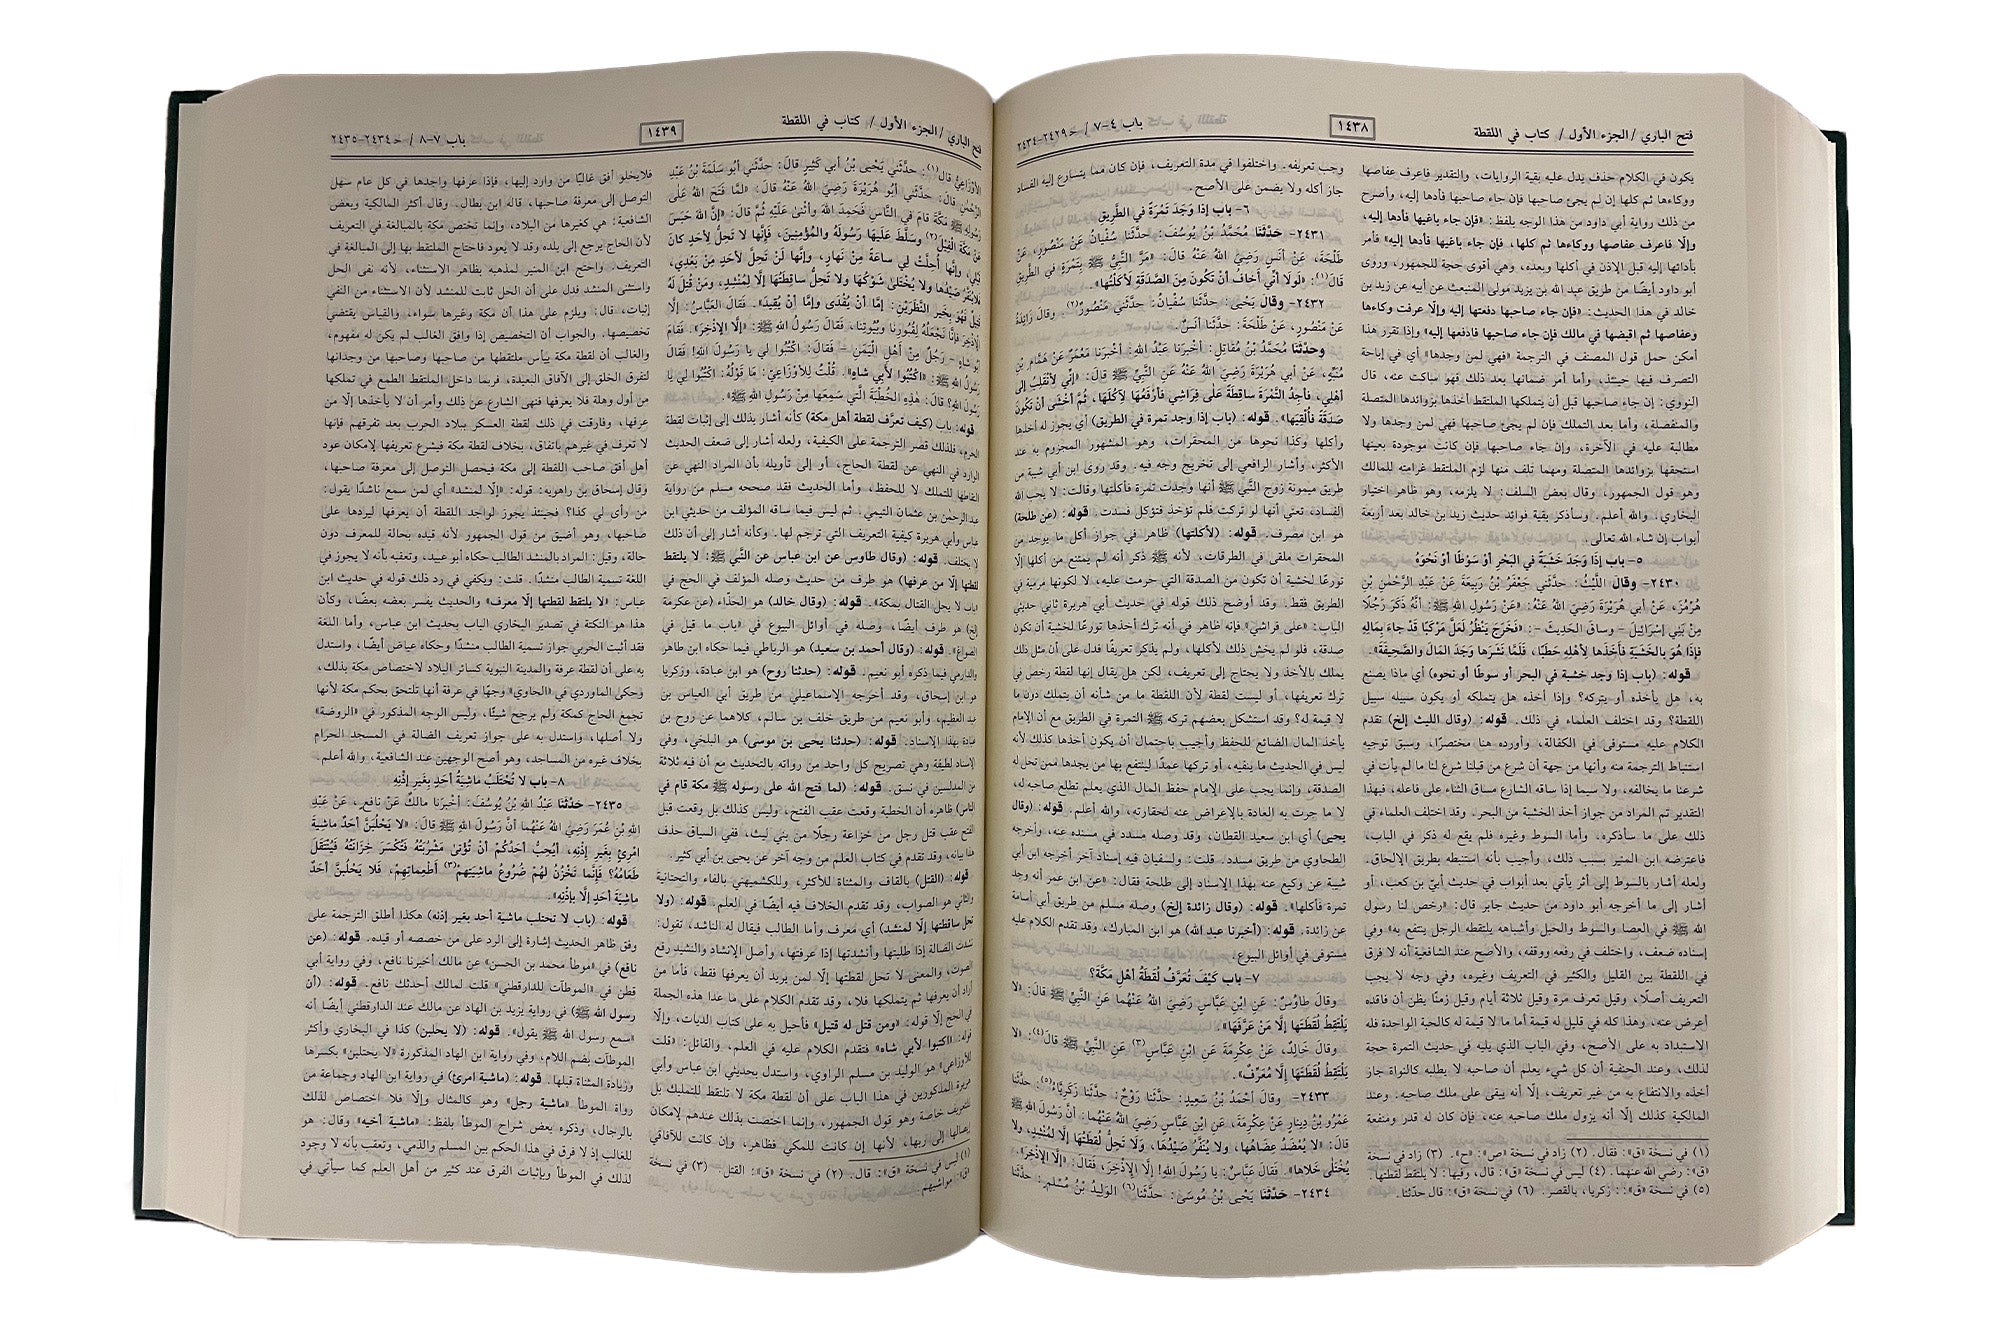 فتح الباري /الجزء الأول / كتاب في اللقطة
١٤٣٨
باب ٤-٧ / ح٢٤٢٩-٢٤٣٤
يكون في الكلام حذف يدل عليه بقية الروايات، والتقدير فاعرف عفاصها
ووكاءها ثم كلها إن لم يجئ صاحبها فإن جاء صاحبها فأدها إليه، وأصرح
من ذلك رواية أبي داود من هذا الوجه بلفظ: «فإن جاء باغيها فأدها إليه،
وإلّا فاعرف عفاصها ووكاءها ثم كلها، فإن جاء باغيها فأدها إليه» فأمر
بأدائها إليه قبل الإذن في أكلها وبعده، وهي أقوى حجة للجمهور، وروى
أبو داود أيضًا من طريق عبد الله بن يزيد مولى المنبعث عن أبيه عن زيد بن
خالد في هذا الحديث: «فإن جاء صاحبها دفعتها إليه وإلّا عرفت وكاءها
وعفاصها ثم اقبضها في مالك فإن جاء صاحبها فادفعها إليه» وإذا تقرر هذا
أمكن حمل قول المصنف في الترجمة «فهي لمن وجدها» أي في إباحة
التصرف فيها حينئذ، وأما أمر ضمانها بعد ذلك فهو ساكت عنه، قال
النووي: إن جاء صاحبها قبل أن يتملكها الملتقط أخذها بزوائدها المتصلة
والمنفصلة، وأما بعد التملك فإن لم يجئ صاحبها فهي لمن وجدها ولا
مطالبة عليه في الآخرة، وإن جاء صاحبها فإن كانت موجودة بعينها
استحقها بزوائدها المتصلة ومهما تلف منها لزم الملتقط غرامته للمالك
وهو قول الجمهور، وقال بعض السلف: لا يلزمه، وهو ظاهر اختيار
البخاري، والله أعلم. وسأذكر بقية فوائد حديث زيد بن خالد بعد أربعة
أبواب إن شاء الله تعالى.
٥- باب إذَا وَجَدَ خَشَبَةً في البَحْرِ أوْ سَوْطًا أوْ نَحْوَهُ
٢٤٣٠- وقَالَ اللَّيْثُ: حدَّثَني جَعْفَرُ بْنُ رَبِيعَةَ عَنْ عَبْدِ الرَّحْمٰنِ بْنِ
هُرْمُزَ، عَنْ أبي هُرَيْرَةَ رَضِيَ اللهُ عَنْهُ: «عَنْ رَسُولِ اللهِ ﷺ: أنَّهُ ذَكَرَ رَجُلًا
مِنْ بَنِي إسْرَائِيلَ - وساق الحَدِيثَ -: «فَخَرَجَ يَنْظُرُ لَعَلَّ مَرْكَبًا قَدْ جاءَ بِمَالِهِ
فإذَا هُوَ بالخَشَبَةِ فأخَذَها لأهْلِهِ حَطَبًا، فَلَمَّا نَشَرَها وَجَدَ المَالَ والصَّحِيفَةَ».
قوله: (باب إذا وجد خشبة في البحر أو سوطًا أو نحوه) أي ماذا يصنع
به، هل يأخذه أو يتركه؟ وإذا أخذه هل يتملكه أو يكون سبيله سبيل
اللقطة؟ وقد اختلف العلماء في ذلك. قوله: (وقال الليث إلخ) تقدم
الكلام عليه مستوفى في الكفالة، وأورده هنا مختصرًا، وسبق توجيه
استنباط الترجمة منه وأنها من جهة أن شرع من قبلنا شرع لنا ما لم يأت في
شرعنا ما يخالفه، ولا سيما إذا ساقه الشارع مساق الثناء على فاعله، فبهذا
التقدير تم المراد من جواز أخذ الخشبة من البحر. وقد اختلف العلماء في
ذلك على ما سأذكره. وأما السوط وغيره فلم يقع له ذكر في الباب،
فاعترضه ابن المنير بسبب ذلك، وأجيب بأنه استنبطه بطريق الإلحاق.
ولعله أشار بالسوط إلى أثر يأتي بعد أبواب في حديث أبيّ بن كعب، أو
أشار إلى ما أخرجه أبو داود من حديث جابر قال: «رخص لنا رسول
الله ﷺ في العصا والسوط والحبل وأشباهه يلتقطه الرجل ينتفع به» وفي
إسناده ضعف، واختلف في رفعه ووقفه، والأصح عند الشافعية أنه لا فرق
في اللقطة بين القليل والكثير في التعريف وغيره، وفي وجه لا يجب
التعريف أصلًا، وقيل تعرف مرة وقيل ثلاثة أيام وقيل زمنًا يظن أن فاقده
أعرض عنه، وهذا كله في قليل له قيمة أما ما لا قيمة له كالحبة الواحدة فله
الاستبداد به على الأصح، وفي الباب الذي يليه في حديث التمرة حجة
لذلك، وعند الحنفية أن كل شيء يعلم أن صاحبه لا يطلبه كالنواة جاز
أخذه والانتفاع به من غير تعريف، إلّا أنه يبقى على ملك صاحبه. وعند
المالكية كذلك إلّا أنه يزول ملك صاحبه عنه، فإن كان له قدر ومنفعة
(١) في نسخة «ق»: فقال. (٢) زاد في نسخة «ص»: «ح». (٣) زاد في نسخة
«ق»: رضي الله عنهما. (٤) ليس في نسخة «ق»: قال، وفيها: لا يلتقط لقطتها.
(٥) في نسخة «ق»: زكريا، بالقصر. (٦) في نسخة «ق»: قال حدثنا.
وجب تعريفه. واختلفوا في مدة التعريف، فإن كان مما يتسارع إليه الفساد
جاز أكله ولا يضمن على الأصح.
٦- باب إذَا وَجَدَ تَمْرَةً في الطَّرِيقِ
٢٤٣١- حَدَّثَنا مُحَمَّدُ بْنُ يُوسُفَ: حدَّثَنا سُفْيَانُ عَنْ مَنْصُورٍ، عَنْ
طَلْحَةَ، عَنْ أنَسٍ رَضِيَ اللهُ عَنْهُ قالَ: «مَرَّ النَّبيُّ ﷺ بِتَمْرَةٍ في الطَّرِيقِ
قَالَ(١): «لَوْلَا أنِّي أخافُ أنْ تَكُونَ مِنَ الصَّدَقَةِ لأكَلْتُها».
٢٤٣٢- وقَالَ يَحْيَى: حدَّثَنا سُفْيَانُ: حدَّثَني مَنْصُورٌ(٢). وقالَ زَائِدَةُ
عَنْ مَنْصُورٍ، عَنْ طَلْحَةَ: حدَّثَنا أنَسٌ.
وحدَّثَنا مُحَمَّدُ بْنُ مُقَاتِلٍ: أخْبَرَنا عَبْدُ اللهِ: أخْبَرَنا مَعْمَرٌ عَنْ هَمَّامِ بْنِ
مُنَبِّهٍ، عَنْ أبي هُرَيْرَةَ رَضِيَ اللهُ عَنْهُ عَنِ النَّبيِّ ﷺ قالَ: «إنِّي لأنْقَلِبُ إلَى
أهْلِي، فأجِدُ التَّمْرَةَ ساقِطَةً عَلَى فِرَاشِي فأرْفَعُها لِآكُلَها، ثُمَّ أخْشَى أنْ تَكُونَ
صَدَقَةً فأُلْقِيَها». قوله: (باب إذا وجد تمرة في الطريق) أي يجوز له أخذها
وأكلها وكذا نحوها من المحقرات، وهو المشهور المجزوم به عند
الأكثر، وأشار الرافعي إلى تخريج وجه فيه. وقد روى ابن أبي شيبة من
طريق ميمونة زوج النَّبيِّ ﷺ أنها وجدت تمرة فأكلتها وقالت: لا يحب الله
الفساد، تعني أنها لو تركت فلم تؤخذ فتؤكل فسدت. قوله: (عن طلحة)
هو ابن مصرف. قوله: (لأكلتها) ظاهر في جواز أكل ما يوجد من
المحقرات ملقى في الطرقات، لأنه ﷺ ذكر أنه لم يمتنع من أكلها إلّا
تورعًا لخشية أن تكون من الصدقة التي حرمت عليه، لا لكونها مرمية في
الطريق فقط. وقد أوضح ذلك قوله في حديث أبي هريرة ثاني حديثي
الباب: «على فراشي» فإنه ظاهر في أنه ترك أخذها تورعًا لخشية أن تكون
صدقة، فلو لم يخش ذلك لأكلها، ولم يذكر تعريفًا فدل على أن مثل ذلك
يملك بالأخذ ولا يحتاج إلى تعريف، لكن هل يقال إنها لقطة رخص في
ترك تعريفها، أو ليست لقطة لأن اللقطة ما من شأنه أن يتملك دون ما
لا قيمة له؟ وقد استشكل بعضهم تركه ﷺ التمرة في الطريق مع أن الإمام
يأخذ المال الضائع للحفظ وأجيب باحتمال أن يكون أخذها كذلك لأنه
ليس في الحديث ما ينفيه، أو تركها عمدًا لينتفع بها من يجدها ممن تحل له
الصدقة، وإنما يجب على الإمام حفظ المال الذي يعلم تطلع صاحبه له،
لا ما جرت به العادة بالإعراض عنه لحقارته، والله أعلم. قوله: (وقال
يحيى) أي ابن سعيد القطان، وقد وصله مسدد في مسنده عنه، وأخرجه
الطحاوي من طريق مسدد. قلت: ولسفيان فيه إسناد آخر أخرجه ابن أبي
شيبة عن وكيع عنه بهذا الإسناد إلى طلحة فقال: «عن ابن عمر أنه وجد
تمرة فأكلها». قوله: (وقال زائدة إلخ) وصله مسلم من طريق أبي أسامة
عن زائدة. قوله: (أخبرنا عبد الله) هو ابن المبارك، وقد تقدم الكلام عليه
مستوفى في أوائل البيوع.
٧- باب كَيْفَ تُعَرَّفُ لُقَطَةُ أهْلِ مَكَّةَ؟
وقالَ طاوُسٌ: عَنِ ابْنِ عَبَّاسٍ رَضِيَ اللهُ عَنْهُما عَنِ النَّبيِّ ﷺ قالَ: «لا
يَلْتَقِطُ لُقَطَتَها إلَّا مَنْ عَرَّفَها».
وقالَ خالِدٌ، عَنْ عِكْرِمَةَ عَنِ ابْنِ عَبَّاسٍ(٣) عَنِ النَّبيِّ ﷺ قالَ(٤). «لا
يَلْتَقِطُ لُقَطَتَها إلَّا مُعَرِّفٌ».
٢٤٣٣- وقالَ أحْمَدُ بْنُ سَعِيدٍ: حدَّثَنا رَوْحٌ: حدَّثَنا زَكَرِيَّاءُ(٥). حدَّثَنا
عَمْرُو بْنُ دِينارٍ عَنْ عِكْرِمَةَ، عَنِ ابْنِ عَبَّاسٍ رَضِيَ اللهُ عَنْهُما: أنَّ رَسُولَ اللهِ ﷺ
قالَ: «لا يُعْضَدُ عِضَاهُها، ولا يُنَفَّرُ صَيْدُها، وَلا تَحِلُّ لُقَطَتُها إلَّا لِمُنْشِدٍ، ولا
يُخْتَلَى خَلاها». فقَالَ عَبَّاسٌ: يا رَسُولَ اللهِ! إلَّا الإذْخِرَ، فَقَالَ: «إلَّا الإذْخِرَ».
٢٤٣٤- حدَّثَنا يَحْيَى بْنُ مُوسَى: حدَّثَنا(٦) الوَلِيدُ بْنُ مُسْلِمٍ: حدَّثَنا
فتح الباري /الجزء الأول / كتاب في اللقطة
١٤٣٩
باب ٧-٨ / ح٢٤٣٤-٢٤٣٥
الأوْزَاعِيُّ قال(١): حدَّثَني يَحْيَى بْنُ أبي كَثِيرٍ قالَ: حدَّثَني أبُو سَلَمَةَ بْنُ عَبْدِ
الرَّحْمٰنِ قالَ: حدَّثَني أبُو هُرَيْرَةَ رَضِيَ اللهُ عَنْهُ قالَ: «لمَّا فَتَحَ اللهُ عَلَى
رَسُولِهِ ﷺ مَكَّةَ قامَ في النَّاسِ فَحَمِدَ اللهَ وأثْنَى عَلَيْهِ ثُمَّ قالَ: «إنَّ اللهَ حَبَسَ
عَنْ مَكَّةَ الفِيلَ(٢) وسَلَّطَ عَلَيْها رَسُولَهُ والمُؤْمِنِينَ، فَإنَّها لا تَحِلُّ لأحَدٍ كانَ
قَبْلِي، وإنَّها أُحِلَّتْ لِي ساعَةً مِنْ نَهارٍ، وإنَّها لَنْ تَحِلَّ لأحَدٍ مِنْ بَعْدِي،
فَلا يُنَفَّرُ صَيْدُها ولا يُخْتَلَى شَوْكُها ولا تَحِلُّ ساقِطَتُها إلَّا لِمُنْشِدٍ، ومَنْ قُتِلَ لَهُ
قَتِيلٌ فَهُوَ بخَيرِ النَّظَرَيْنِ: إمَّا أنْ يُفْدَى وإمَّا أنْ يُقِيدَ». فَقَالَ العَبَّاسُ: إلَّا
الإذْخِرَ فإنَّا نَجْعَلُهُ لِقُبُورِنا وبُيُوتِنا، فَقَالَ رَسُولُ اللهِ ﷺ: «إلَّا الإذْخِرَ». فَقَامَ
أبُو شاهٍ - رَجُلٌ مِنْ أهْلِ اليَمَنِ - فَقَالَ: اكْتُبُوا لِي يا رَسُولَ اللهِ! فَقَالَ
رَسُولُ اللهِ ﷺ: «اكْتُبُوا لأبي شاهٍ». قُلْتُ لِلأوْزَاعِيِّ: مَا قَوْلُهُ: اكْتُبُوا لِي يا
رَسُولَ اللهِ؟ قالَ: هٰذِهِ الخُطْبَةَ الَّتي سَمِعَها مِنْ رَسُولِ اللهِ ﷺ».
قوله: باب (كيف تعرَّف لقطة أهل مكة) كأنه أشار بذلك إلى إثبات لقطة
الحرم، فلذلك قصر الترجمة على الكيفية، ولعله أشار إلى ضعف الحديث
الوارد في النهي عن لقطة الحاج، أو إلى تأويله بأن المراد النهي عن
التقاطها للتملك لا للحفظ، وأما الحديث فقد صححه مسلم من رواية
عبد الرحمٰن بن عثمان التيمي. ثم ليس فيما ساقه المؤلف من حديثي ابن
عباس وأبي هريرة كيفية التعريف التي ترجم لها. وكأنه أشار إلى أن ذلك
لا يختلف. قوله: (وقال طاوس عن ابن عباس عن النَّبيِّ ﷺ: لا يلتقط
لقطتها إلّا من عرفها) هو طرف من حديث وصله المؤلف في الحج في
«باب لا يحل القتال بمكة». قوله: (وقال خالد) هو الحذّاء (عن عكرمة
إلخ) هو طرف أيضًا، وصله في أوائل البيوع في «باب ما قيل في
الصواغ». قوله: (وقال أحمد بن سعيد) هو الرباطي فيما حكاه ابن طاهر
والدارمي فيما ذكره أبو نعيم. قوله: (حدثنا روح) هو ابن عبادة، وزكريا
هو ابن إسحاق، وقد أخرجه الإسماعيلي من طريق أبي العباس بن
عبد العظيم، وأبو نعيم من طريق خلف بن سالم، كلاهما عن روح بن
عبادة بهذا الإسناد. قوله: (حدثنا يحيى بن موسى) هو البلخي، وفي
الإسناد لطيفة وهي تصريح كل واحد من رواته بالتحديث مع أن فيه ثلاثة
من المدلسين في نسق. قوله: (لما فتح الله على رسوله ﷺ مكة قام في
الناس) ظاهره أن الخطبة وقعت عقب الفتح، وليس كذلك بل وقعت قبل
الفتح عقب قتل رجل من خزاعة رجلًا من بني ليث، ففي السياق حذف
هذا بيانه، وقد تقدم في كتاب العلم من وجه آخر عن يحيى بن أبي كثير.
قوله: (القتل) بالقاف والمثناة للأكثر، وللكشميهني بالفاء والتحتانية
والثاني هو الصواب، وقد تقدم الخلاف فيه أيضًا في العلم. قوله: (ولا
تحل ساقطتها إلّا لمنشد) أي معرف وأما الطالب فيقال له الناشد، تقول:
نشدت الضالة إذا طلبتها وأنشدتها إذا عرفتها، وأصل الإنشاد والنشيد رفع
الصوت، والمعنى لا تحل لقطتها إلّا لمن يريد أن يعرفها فقط، فأما من
أراد أن يعرفها ثم يتملكها فلا، وقد تقدم الكلام على ما عدا هذه الجملة
في الحج إلّا قوله: «ومن قتل له قتيل» فأحيل به على كتاب الديات، وإلّا
قوله: «اكتبوا لأبي شاه» فتقدم الكلام عليه في العلم، والقائل: «قلت
للأوزاعي» هو الوليد بن مسلم الراوي، واستدل بحديثي ابن عباس وأبي
هريرة المذكورين في هذا الباب على أن لقطة مكة لا تلتقط للتمليك بل
للتعريف خاصة وهو قول الجمهور، وإنما اختصت بذلك عندهم لإمكان
إيصالها إلى ربها، لأنها إن كانت للمكي فظاهر، وإن كانت للآفاقي
(١) ليس في نسخة «ق»: قال. (٢) في نسخة «ق»: القتل. (٣) في نسخة
«ق»: مواشيهم.
فلا يخلو أفق غالبًا من وارد إليها، فإذا عرفها واجدها في كل عام سهل
التوصل إلى معرفة صاحبها، قاله ابن بطال. وقال أكثر المالكية وبعض
الشافعية: هي كغيرها من البلاد، وإنما تختص مكة بالمبالغة في التعريف
لأن الحاج يرجع إلى بلده وقد لا يعود فاحتاج الملتقط بها إلى المبالغة في
التعريف. واحتج ابن المنير لمذهبه بظاهر الاستثناء، لأنه نفى الحل
واستثنى المنشد فدل على أن الحل ثابت للمنشد لأن الاستثناء من النفي
إثبات، قال: ويلزم على هذا أن مكة وغيرها سواء، والقياس يقتضي
تخصيصها. والجواب أن التخصيص إذا وافق الغالب لم يكن له مفهوم،
والغالب أن لقطة مكة ييأس ملتقطها من صاحبها وصاحبها من وجدانها
لتفرق الخلق إلى الآفاق البعيدة، فربما داخل الملتقط الطمع في تملكها
من أول وهلة فلا يعرفها فنهى الشارع عن ذلك وأمر أن لا يأخذها إلّا من
عرفها، وفارقت في ذلك لقطة العسكر ببلاد الحرب بعد تفرقهم فإنها
لا تعرف في غيرهم باتفاق، بخلاف لقطة مكة فيشرع تعريفها لإمكان عود
أهل أفق صاحب اللقطة إلى مكة فيحصل التوصل إلى معرفة صاحبها،
وقال إسحاق بن راهويه: قوله: «إلّا لمنشد» أي لمن سمع ناشدًا يقول:
من رأى لي كذا؟ فحينئذ يجوز لواجد اللقطة أن يعرفها ليردها على
صاحبها، وهو أضيق من قول الجمهور لأنه قيده بحالة للمعرف دون
حالة، وقيل: المراد بالمنشد الطالب حكاه أبو عبيد، وتعقبه بأنه لا يجوز في
اللغة تسمية الطالب منشدًا. قلت: ويكفي في رد ذلك قوله في حديث ابن
عباس: «لا يلتقط لقطتها إلّا معرف» والحديث يفسر بعضه بعضًا، وكأن
هذا هو النكتة في تصدير البخاري الباب بحديث ابن عباس، وأما اللغة
فقد أثبت الحربي جواز تسمية الطالب منشدًا وحكاه عياض أيضًا، واستدل
به على أن لقطة عرفة والمدينة النبوية كسائر البلاد لاختصاص مكة بذلك،
وحكى الماوردي في «الحاوي» وجهًا في عرفة أنها تلتحق بحكم مكة لأنها
تجمع الحاج كمكة ولم يرجح شيئًا، وليس الوجه المذكور في «الروضة»
ولا أصلها، واستدل به على جواز تعريف الضالة في المسجد الحرام
بخلاف غيره من المساجد، وهو أصح الوجهين عند الشافعية، والله أعلم.
٨- باب لا تُحْتَلَبُ مَاشِيَةُ أحَدٍ بِغَيرِ إذْنِهِ
٢٤٣٥- حدَّثَنا عَبْدُ اللهِ بْنُ يُوسُفَ: أخْبَرَنا مالكٌ عَنْ نافِعٍ، عَنْ عَبْدِ
اللهِ بْنِ عُمَرَ رَضِيَ اللهُ عَنْهُما أنَّ رَسُولَ اللهِ ﷺ قالَ: «لا يَحْلُبَنَّ أحَدٌ ماشِيَةَ
امْرِئٍ بِغَيرِ إذْنِهِ، أيُحِبُّ أحَدُكُمْ أنْ تُؤْتَى مَشْرُبَتُهُ فَتُكْسَرَ خِزَانَتُهُ فَيُنْتَقَلَ
طَعَامُهُ؟ فَإنَّما تَخْزُنُ لَهُمْ ضُرُوعُ ماشِيَتِهِمْ(٣) أطْعِمَاتِهِمْ، فَلا يَحْلُبَنَّ أحَدٌ
ماشِيَةَ أحَدٍ إلَّا بِإذْنِهِ».
قوله: (باب لا تحتلب ماشية أحد بغير إذنه) هكذا أطلق الترجمة على
وفق ظاهر الحديث إشارة إلى الرد على من خصصه أو قيده. قوله: (عن
نافع) في «موطأ محمد بن الحسن» عن مالك أخبرنا نافع، وفي رواية أبي
قطن في «الموطآت للدارقطني» قلت لمالك أحدثك نافع. قوله: (أن
رسول الله ﷺ) في رواية يزيد بن الهاد عن مالك عند الدارقطني أيضًا أنه
«سمع رسول الله ﷺ يقول». قوله: (لا يحلبن) كذا في البخاري وأكثر
الموطآت بضم اللام، وفي رواية ابن الهاد المذكورة «لا يحتلبن» بكسرها
وزيادة المثناة قبلها. قوله: (ماشية امرئ) في رواية ابن الهاد وجماعة من
رواة الموطأ «ماشية رجل» وهو كالمثال وإلّا فلا اختصاص لذلك
بالرجال، وذكره بعض شراح الموطأ بلفظ: «ماشية أخيه» وقال: هو
للغالب إذ لا فرق في هذا الحكم بين المسلم والذمي، وتعقب بأنه لا وجود
لذلك في الموطأ وبإثبات الفرق عند كثير من أهل العلم كما سيأتي في